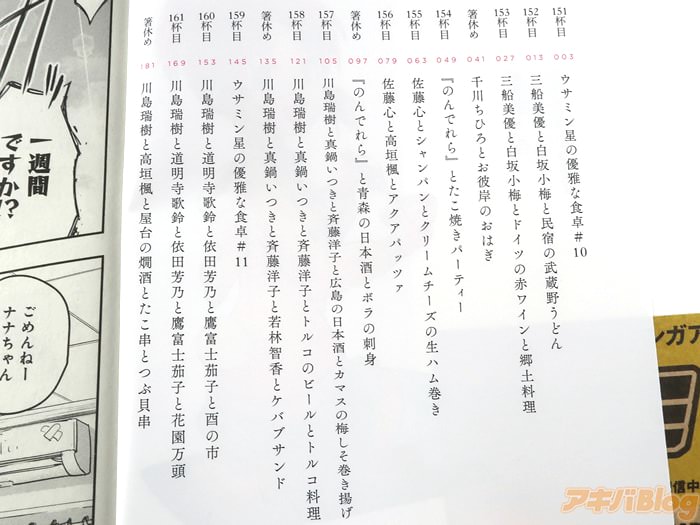 151杯目 003 ウサミン星の優雅な食卓#10
152杯目 013 三船美優と白坂小梅と民宿の武蔵野うどん
153杯目 027 三船美優と白坂小梅とドイツの赤ワインと郷土料理
箸休め 041 千川ちひろとお彼岸のおはぎ
154杯目 049 『のんでれら』とたこ焼きパーティー
155杯目 063 佐藤心とシャンパンとクリームチーズの生ハム巻き
156杯目 079 佐藤心と高垣楓とアクアパッツァ
箸休め 097 『のんでれら』と青森の日本酒とボラの刺身
157杯目 105 川島瑞樹と真鍋いつきと斉藤洋子と広島の日本酒とカマスの梅しそ巻き揚げ
158杯目 121 川島瑞樹と真鍋いつきと斉藤洋子とトルコのビールとトルコ料理
箸休め 135 川島瑞樹と真鍋いつきと斉藤洋子と若林智香とケバブサンド
159杯目 145 ウサミン星の優雅な食卓#11
160杯目 153 川島瑞樹と道明寺歌鈴と依田芳乃と鷹富士茄子と酉の市
161杯目 169 川島瑞樹と道明寺歌鈴と依田芳乃と鷹富士茄子と花園万頭
箸休め 181 川島瑞樹と高垣楓と屋台の燗酒とたこ串とつぶ貝串
一週間
ですか!?
ごめんねー
ナナちゃん
ンガア
信中
アキバBlog